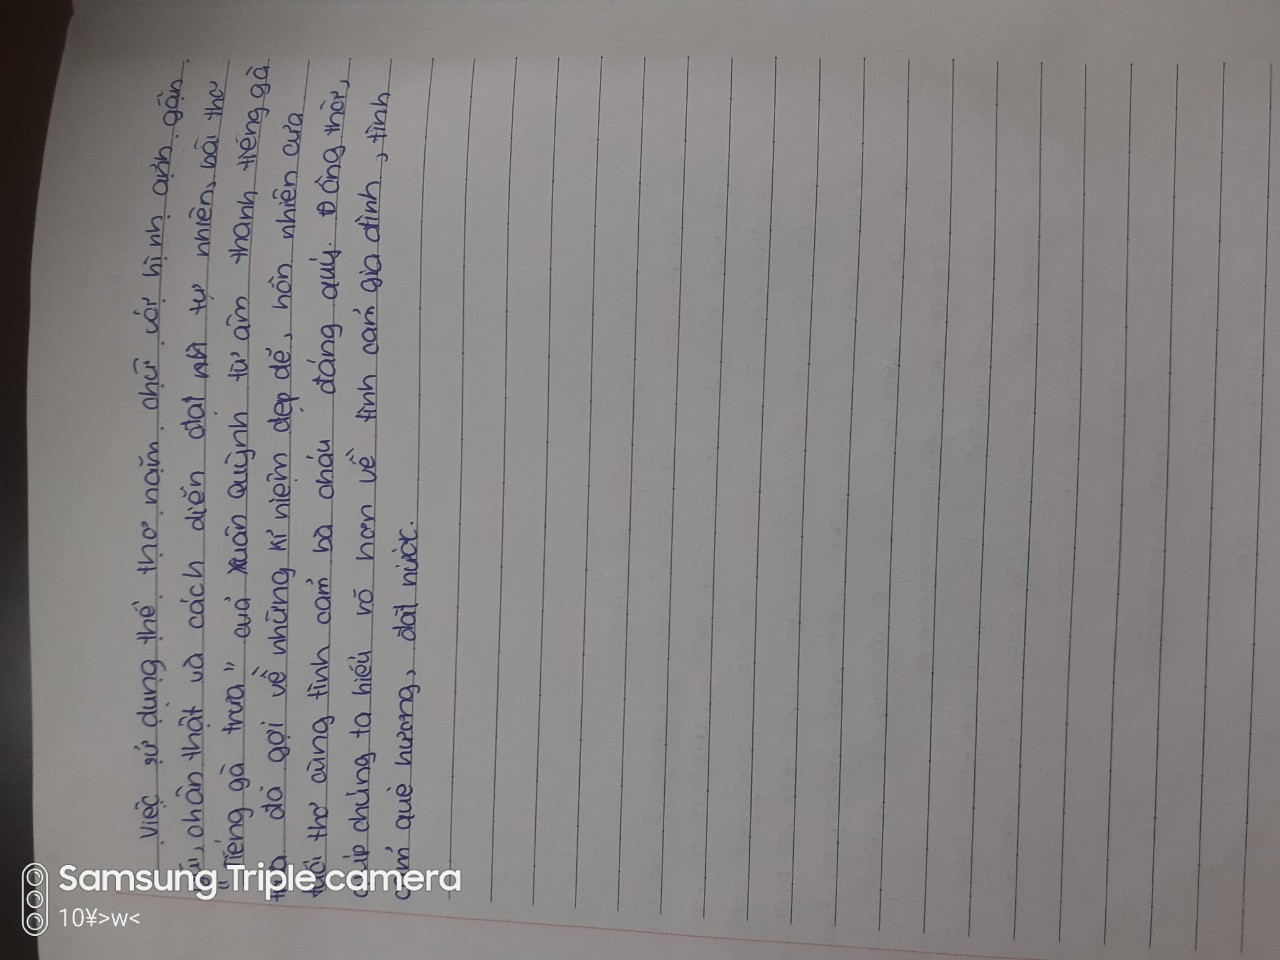 Việc sử dụng thể thơ năm chữ với hình ảnh gần
chân thật và cách diễn đạt tự nhiên, bài thơ
"Tiếng gà trưa" của Xuân Quỳnh từ âm thanh tiếng gà
trưa đã gợi về những kỉ niệm đẹp đẽ, hồn nhiên của
tuổi thơ cùng tình cảm bà cháu đáng quý. Đồng thời,
giúp chúng ta hiểu rõ hơn về tình cảm gia đình, tình
cảm quê hương, đất nước.
Samsung Triple camera
10¥>w<